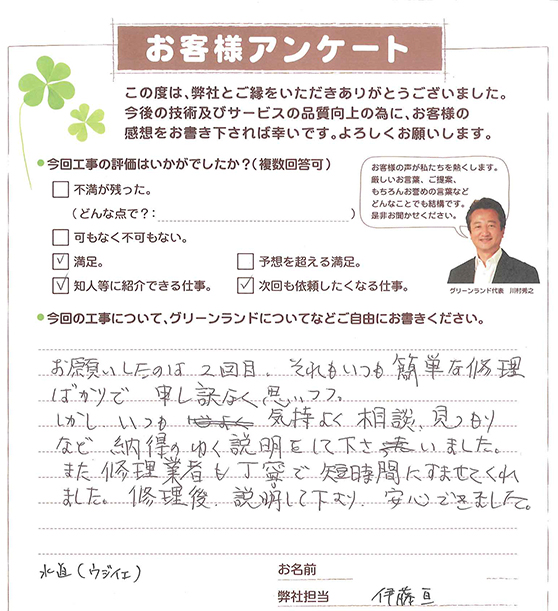 お客様アンケート
この度は、弊社とご縁をいただきありがとうございました。
今後の技術及びサービスの品質向上の為に、お客様の
感想をお書き下されば幸いです。よろしくお願いします。
●今回工事の評価はいかがでしたか？（複数回答可）
□ 不満が残った。
（どんな点で？：　　　　）
□ 可もなく不可もない。
☑ 満足。　□ 予想を超える満足。
☑ 知人等に紹介できる仕事。　☑ 次回も依頼したくなる仕事。
お客様の声が私たちを熱くします。
厳しいお言葉、ご提案、
もちろんお誉めの言葉など
どんなことでも結構です。
是非お聞かせください。
グリーンランド代表　川村秀之
●今回の工事について、グリーンランドについてなどご自由にお書きください。
お願いしたのは 2回目、それもいつも簡単な修理
ばかりで 申し訳なく思いつつ。
しかし いつも 気持よく 相談、見つもり
など 納得のゆく説明をして下さいました。
また修理業者も丁寧で 短時間にすませてくれ
ました。修理後、説明して下さり、安心できました。
水道（ウジイエ）
お名前
弊社担当　伊藤 亘